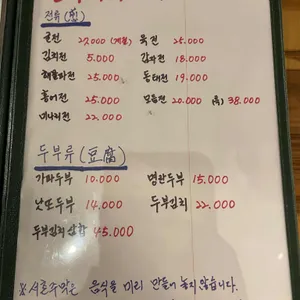 전류 (煎)
굴전 27,000 (계절) 육전 25.000
김치전 5.000 감자전 18.000
해물파전 25.000 동태전 19.000
홍어전 25.000 모듬전 20.000 (대) 38.000
미나리전 22.000
두부류 (豆腐)
가파두부 10.000 명란두부 15.000
낫또두부 14.000 두부김치 22.000
두부김치 삼합 45.000
음식을 미리 만들어 놓지 않습니다.